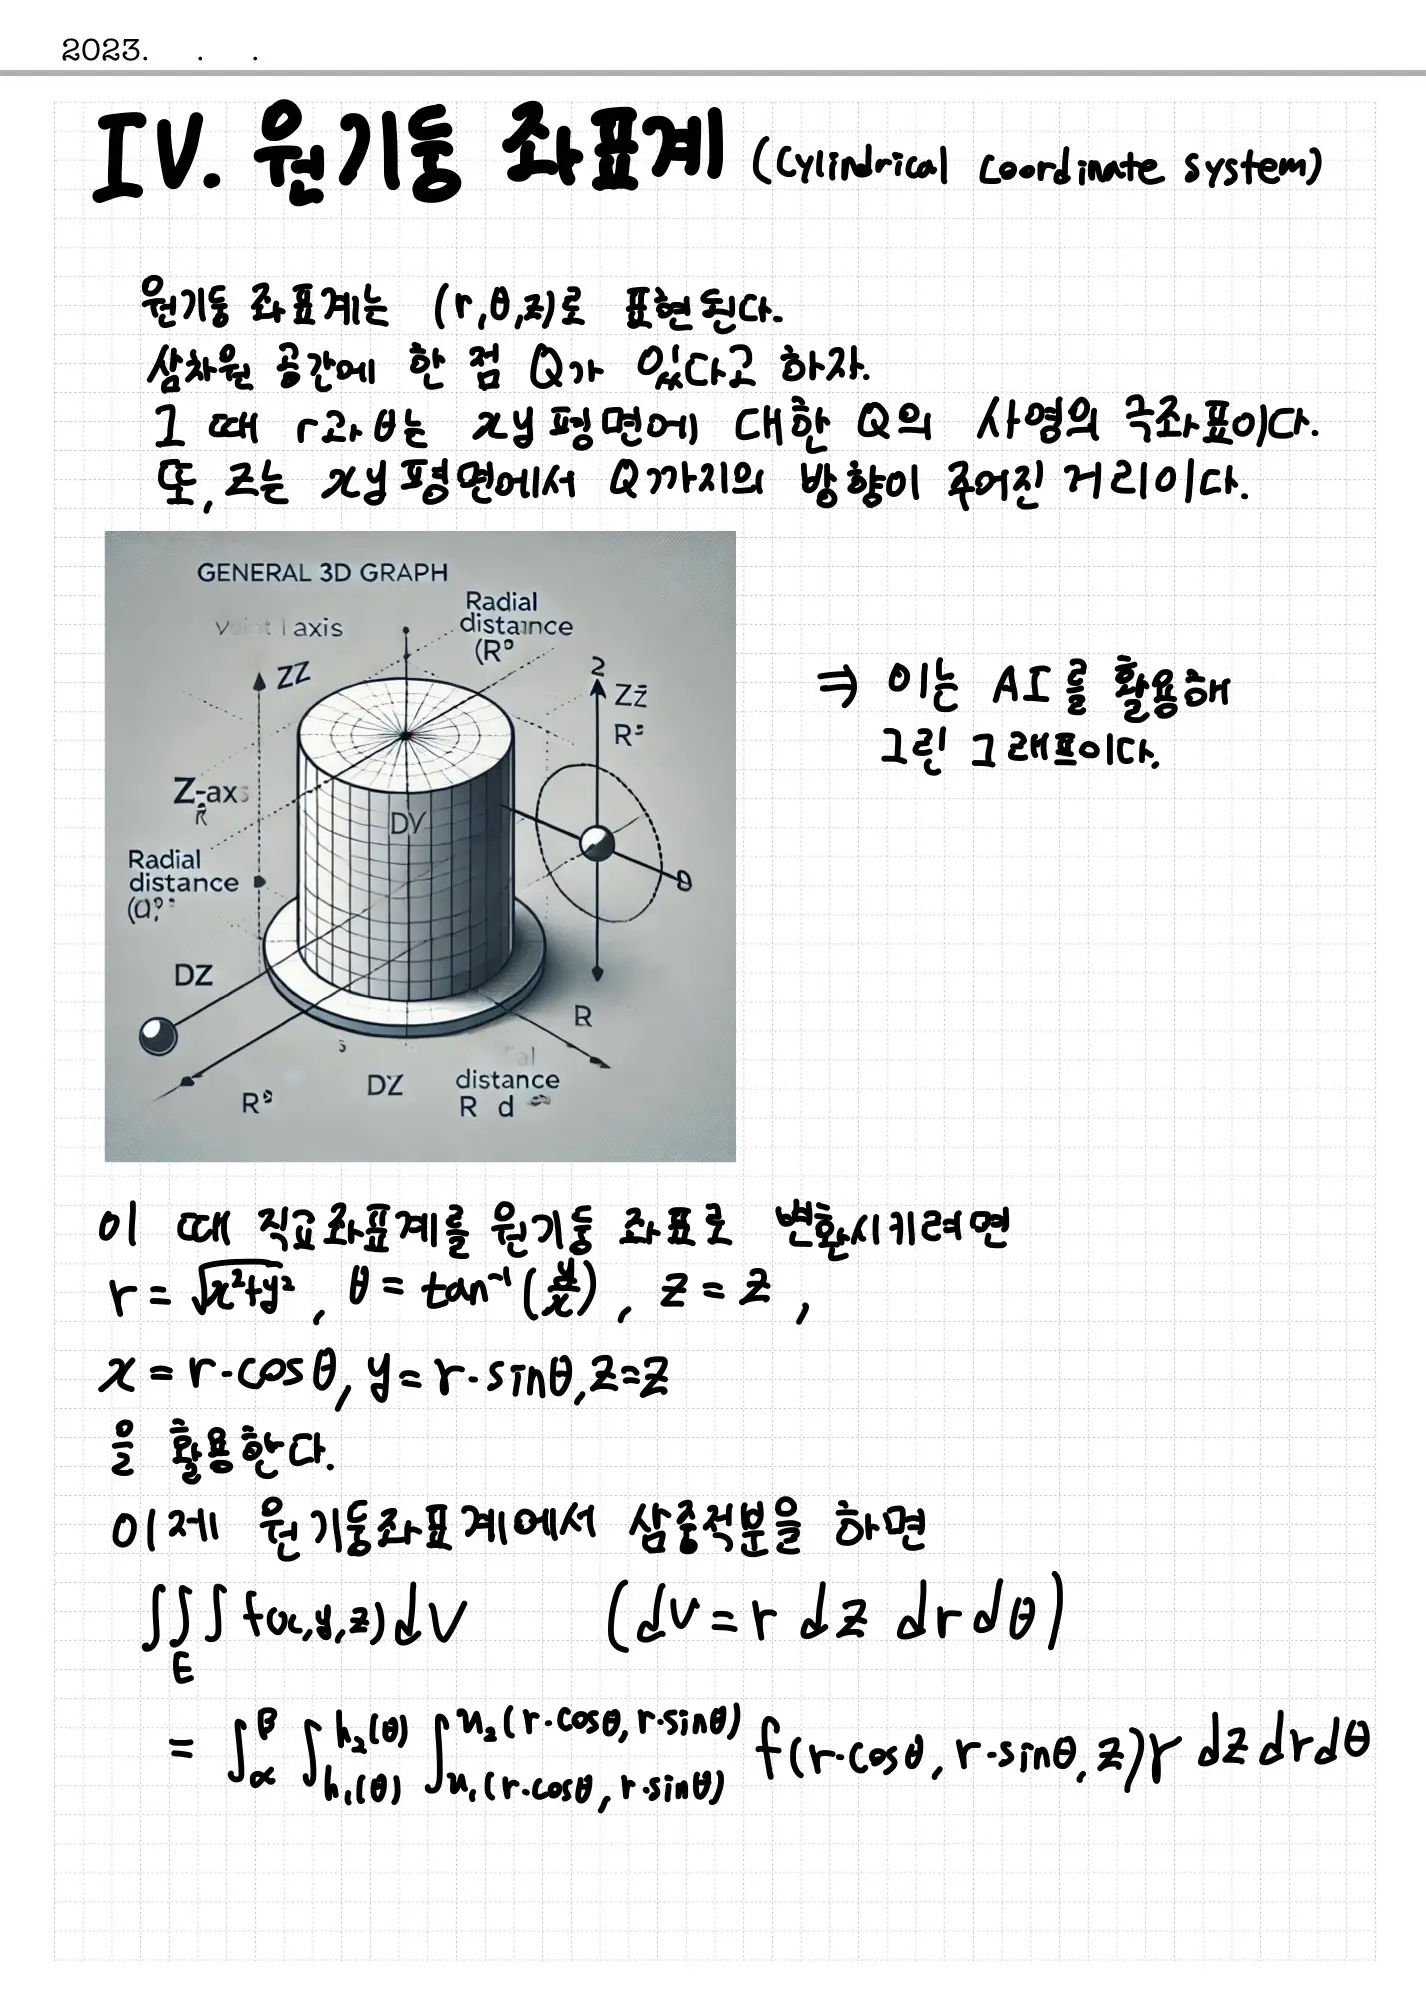 2023. . .
IV. 원기둥 좌표계 (Cylindrical coordinate system)
원기둥 좌표계는 (r,θ,z)로 표현된다.
삼차원 공간에 한 점 Q가 있다고 하자.
그 때 r과 θ는 xy평면에 대한 Q의 사영의 극좌표이다.
또, z는 xy평면에서 Q까지의 방향이 주어진 거리이다.
GENERAL 3D GRAPH
axis
Radial
distance
(R
ZZ
2
Zz̄
R
Z-ax
DV
Radial
distance
θ
DZ
R
R
DZ
distance
R d
⇒ 이는 AI를 활용해
그린 그래프이다.
이 때 직교좌표계를 원기둥 좌표로 변환시키려면
r = √x²+y² , θ = tan⁻¹(y/x) , z = z ,
x = r·cosθ, y = r·sinθ, z=z
을 활용한다.
이제 원기둥좌표계에서 삼중적분을 하면
∫∫∫ f(x,y,z)dV (dV = r dz dr dθ)
E
= ∫_α^β ∫_{h₁(θ)}^{h₂(θ)} ∫_{u₁(r·cosθ, r·sinθ)}^{u₂(r·cosθ, r·sinθ)} f(r·cosθ, r·sinθ, z)r dz dr dθ